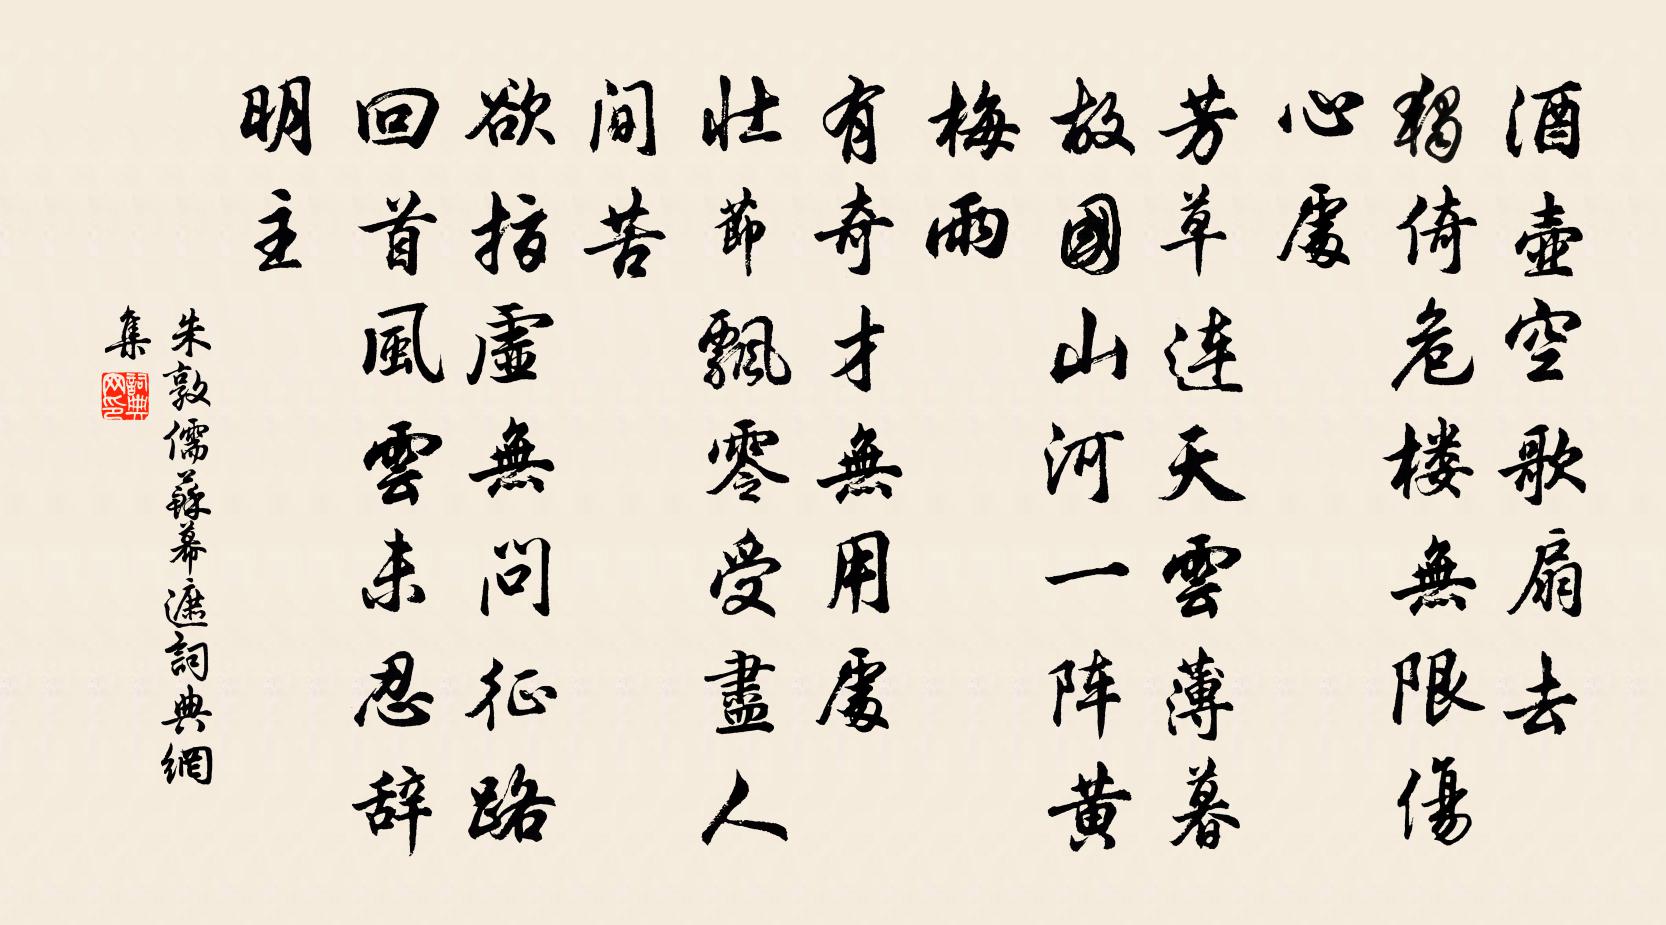 酒壺空歌扇去
獨倚危楼無限傷
心處
芳草连天雲薄暮
故國山河一阵黄
梅雨
有奇才無用處
壮節飄零受盡人
间苦
欲指虛無问征路
回首風雲未忍辞
明主
朱敦儒蘇幕遮詞典網
集
詞典网印